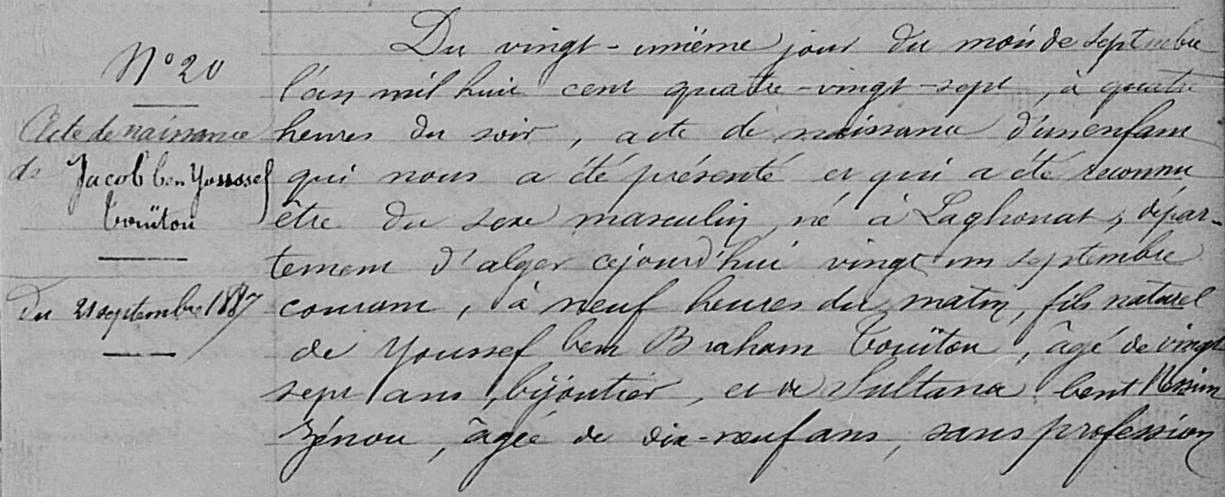 N° 20
Acte de naissance
de Jacob ben Youssef
Touïtou
Du 21 septembre 1887
Du vingt-unième jour du mois de septembre
l'an mil huit cent quatre-vingt-sept, à quatre
heures du soir, acte de naissance d'un enfant
qui nous a été présenté et qui a été reconnu
être du sexe masculin, né à Laghouat, dépar-
tement d'alger cejourd'hui vingt un septembre
courant, à neuf heures du matin, fils naturel
de Youssef ben Braham Touïtou, âgé de vingt
sept ans, bijoutier, et de Sultana bent Nessim
Zénou, âgée de dix-neuf ans, sans profession